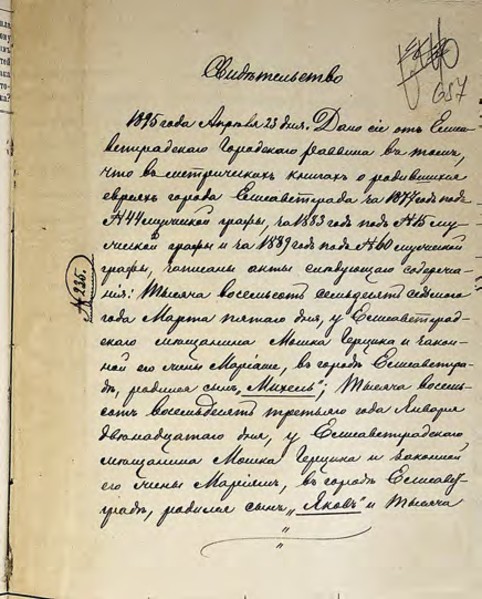 657
Свидѣтельство
1895 года Апрѣля 23 дня. Дано сіе отъ Елиса-
ветградскаго Городскаго Раввина въ томъ,
что въ метрическихъ книгахъ о родившихся
евреяхъ города Елисаветграда за 1877 годъ подъ
№ 44 мужской графы, за 1883 годъ подъ № 15 му-
жеской графы и за 1889 годъ подъ № 60 мужской
графы, записаны акты слѣдующаго содержа-
нія: Тысяча восемьсотъ семьдесятъ седьмого
года Марта пятаго дня, у Елисаветград-
скаго мѣщанина Мошка Герцика и закон-
ной его жены Маріаше, въ городѣ Елисаветгра-
дѣ, родился сынъ „Михель"; Тысяча восемь-
сотъ восемьдесятъ третьяго года Января
двѣнадцатаго дня, у Елисаветградскаго
мѣщанина Мошка Герцика и законной
его жены Маріямъ, въ городѣ Елисавет-
градѣ, родился сынъ „Яковъ" и Тысяча
№ 235.